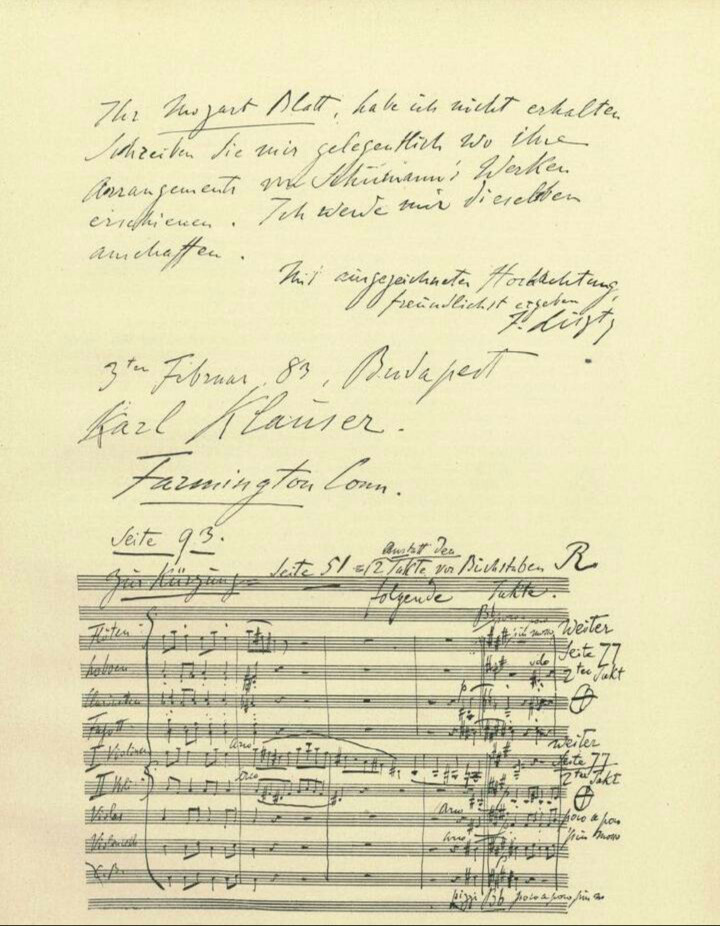 Ihr Mozart Blatt, habe ich nicht erhalten
Schreiben Sie mir gelegentlich wo ihre
Arrangements von Schumann's Werken
erschienen. Ich werde mir dieselben
anschaffen.
Mit ausgezeichneter Hochachtung,
freundlichst ergeben
F. Liszt
3ter Februar, 83, Budapest
Karl Klauser.
Farmington Conn.
Seite 93.
anstatt den
Zur Kürzung = Seite 51 = (2 Takte vor Buchstaben R
folgende Takte.
Weiter
Seite 77
2ter Takt
Flöten
Hoboen
Clarinetten
Fagott
I Violinen
arco
weiter
Seite 77
2ter Takt
II Viol
arco
Violas
arco
poco a poco
più mosso
Violoncell
arco
C.B.
pizz
poco a poco più mo